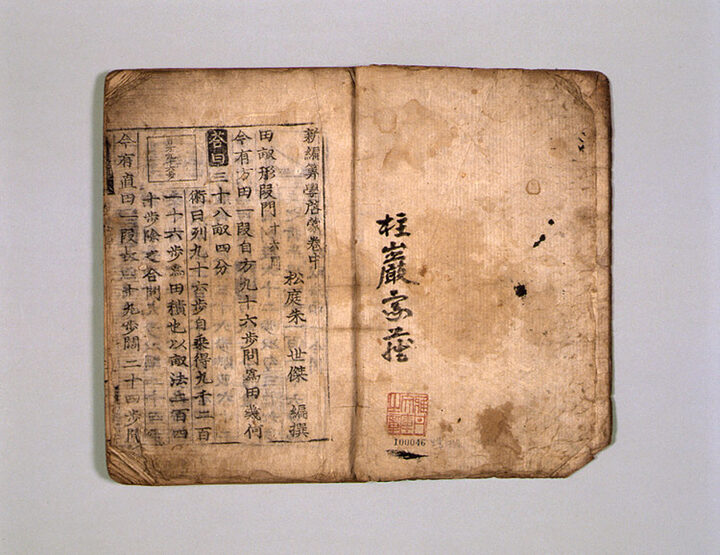 柱巖家藏
100046
新編算學啓蒙卷中
松庭朱 世傑 編撰
田畝形段門 十六問
今有方田一段自方九十六步問爲田幾何
答曰三十八畝四分
術曰列九十六步自乘得九千二百
一十六步爲田積也以畝法二百四
十步除之合問
今有直田一段長 十九步闊二十四步問